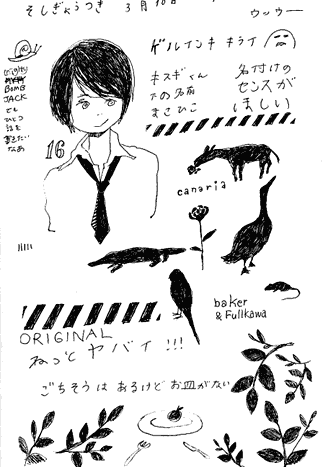 そしぎょうつき 3月10日
ウッウー
ゲルインキ キライ
mighty
BOMB
JACK
でも
ひとつ
話を
書きたい
なぁ
キスギくん
下の名前
まさひこ
名付けの
センスが
ほしい
16
canaria
baker
& Fullkawa
ORIGINAL
ねっと ヤバイ !!!
ごちそうは あるけど お皿がない